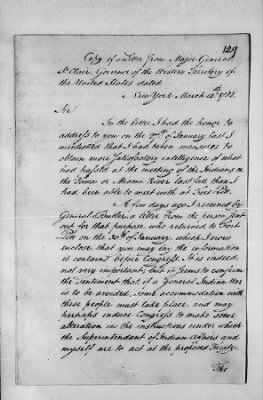 129
Copy of a Letter from Major General
St Clair, Governor of the Western Territory of
the United States dated
New York March 14th 1788.
Sir
In the letter I had the honor to
address to you on the 27th of January last I
mentioned that I had taken measures to
obtain more satisfactory intelligence of what
had passed at the meeting of the Indians on
the Tawa or Miami River last fall than I
had been able to meet with at Fort Pitt.
A few days ago I received by
General Butler, a letter from the person sent
out for that purpose, who returned to Fort
Pitt on the 30th of January, which I now
enclose that you may lay the information
it contains before Congress. It is indeed
not very important; but it seems to confirm
the sentiment that if a General Indian War
is to be avoided, some accommodation with
these people must take place, and may
perhaps induce Congress to make some
alteration in the instructions under which
the Superintendent of Indian affairs and
myself are to act at the proposed Treaty.
The